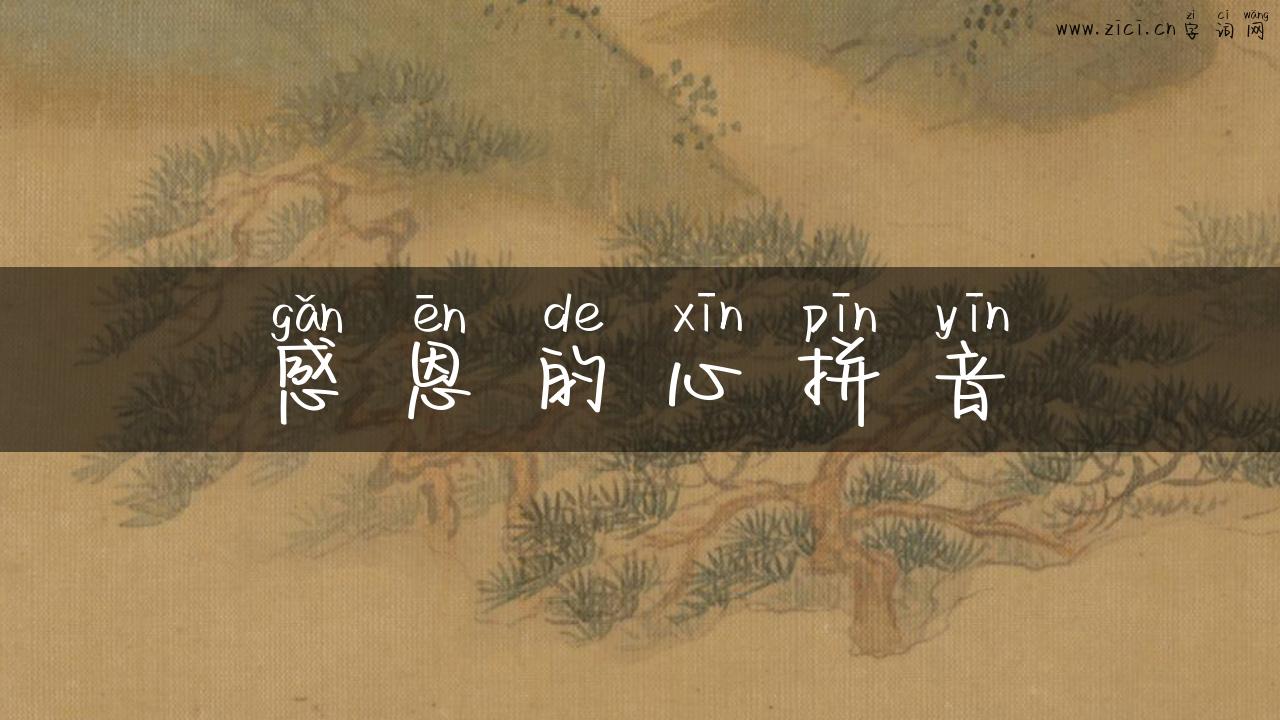 zì cí wǎng
www.zici.cn字词网
gǎn ēn de xīn pīn yīn
感恩的心拼音